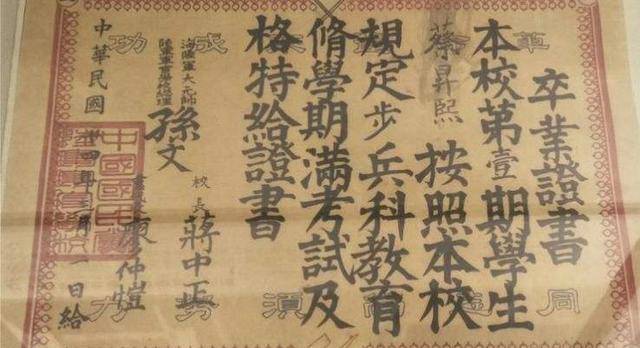 卒業證書
本校第壹期學生
蔡昇熙 按照本校
規定步兵科教育
脩學期滿考試及
格特給證書
海陸軍大元帥
陸軍軍官學校總理 孫文
校長 蔣中正
廖仲愷
中華民國 四年 月一日給
革 成功
同 須努力
中國國民黨